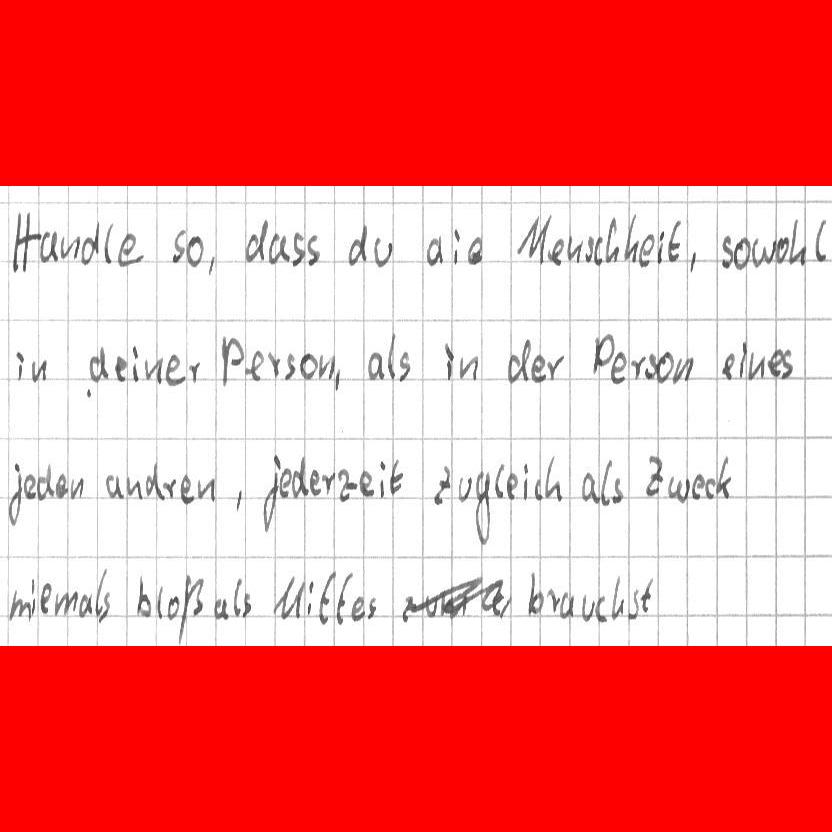 Handle so, dass du die Menschheit, sowohl
in deiner Person, als in der Person eines
jeden andren, jederzeit zugleich als Zweck
niemals bloß als Mittes brauchst